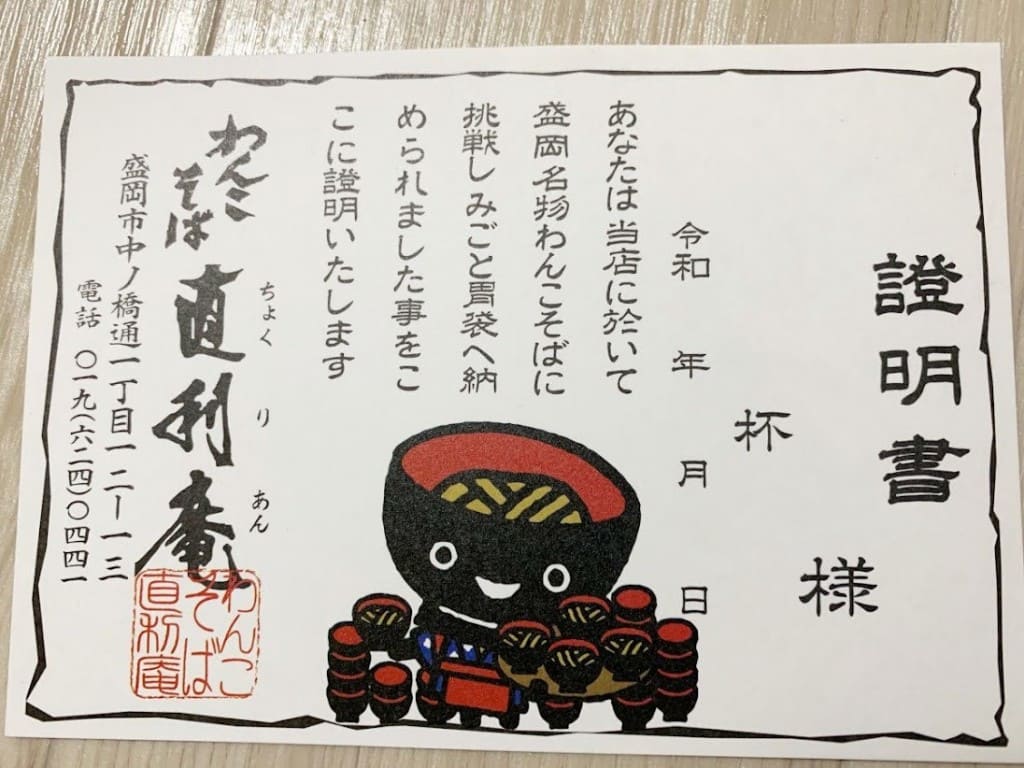 證明書
様
杯
令和 年 月 日
あなたは当店に於いて
盛岡名物わんこそばに
挑戦しみごと胃袋へ納
められました事をこ
こに證明いたします
わんこ
そば
直利庵
ちょく り あん
盛岡市中ノ橋通一丁目一二ー一三
電話 〇一九(六二四)〇四四一
わんこ
そば
直利庵